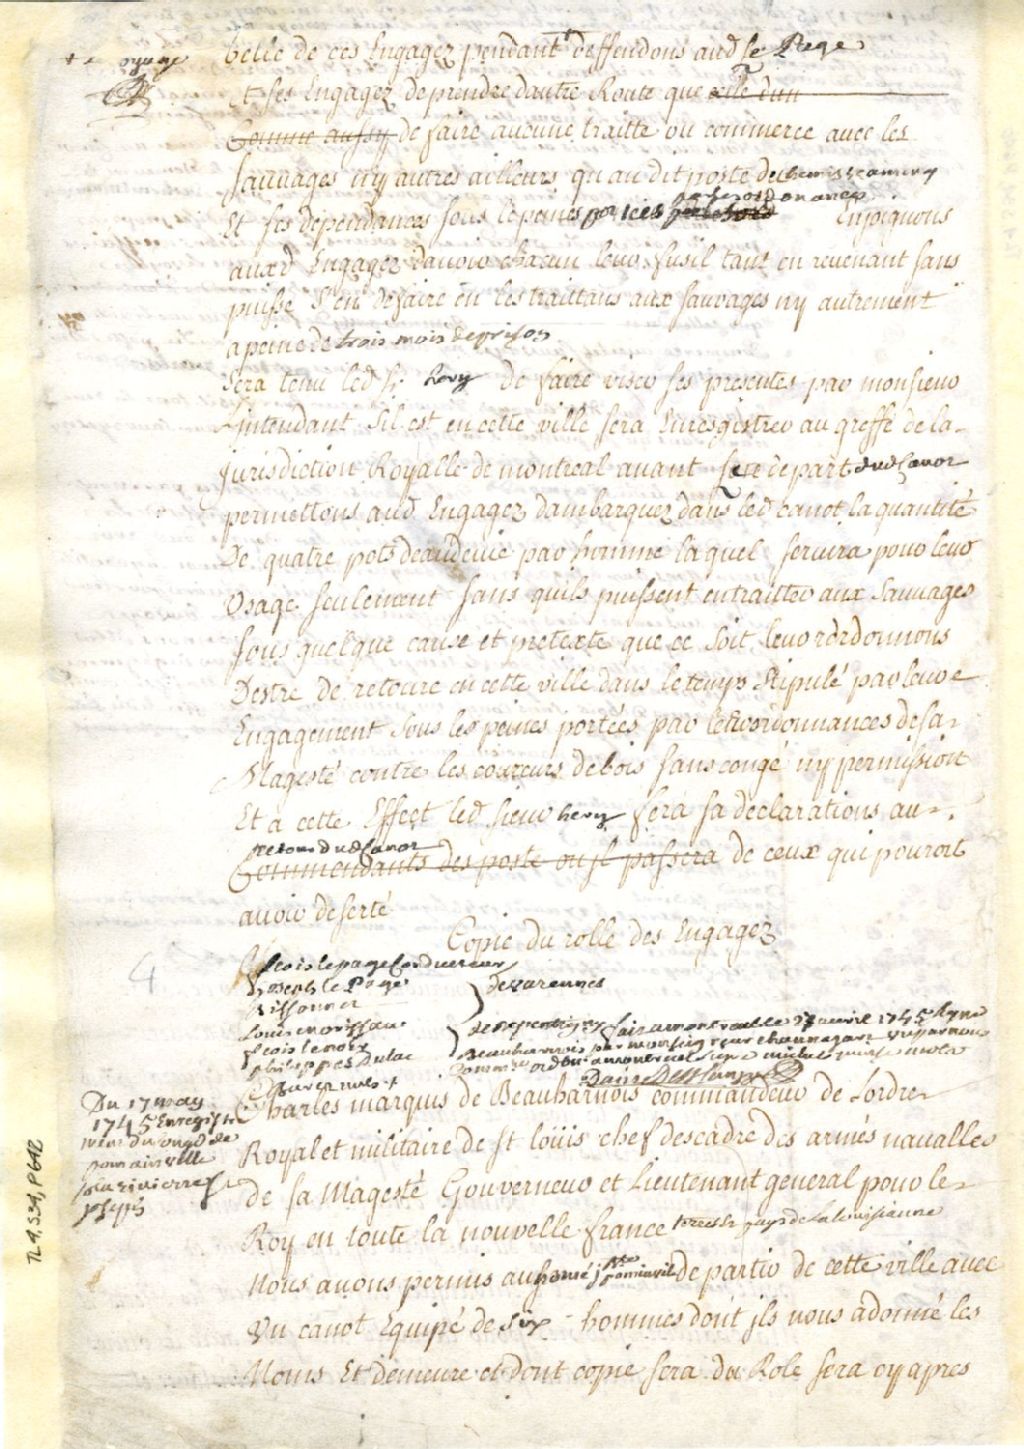 belle de ces Engagez pendant deffendons aud Sr le Page
voyage
Et ses Engagez de prendre dautre Route que celle dun
Comme aussy de faire aucune traitte ou commerce avec les
sauvages ny autres ailleurs qu au dit poste de themiscaming
par les ordonances
Et ses dependances sous les peines portées Enjoignons
auxd Engagez davoir chacun leur fusil tant en revenant sans
puisse s'en defaire en les traittans aux sauvages ny autrement
a peine de trois mois de prison
Sera tenu led Sr hery de faire viser ses presentes par monsieur
Lintendant sil est en cette ville sera Enregistrer au greffe de la
Jurisdiction Royalle de montreal avant le depart dud Canot
permettons aud Engagez dambarquer dans led canot la quantité
De quatre pots deaudevie par homme laquel servira pour leur
Usage seulement sans quils puissent en traitter aux Sauvages
sous quelque cause et pretexte que ce soit leur ordonnons
Destre de retoure en cette ville dans le temps stipulé par leur
Engagement sous les peines portées par les ordonnances de sa
Magesté contre les coureurs de bois sans congé ny permission
Et a cette Effect led sieur hery fera sa declarations au
retour dud Canot
Commendants des poste ou jl passera de ceux qui pouroit
avoir deserté
Copie du rolle des Engagez
4
fcois lepage Conducteur
Joseph le Page
de varennes
Louis morissau
fcois lenoir
de repentigny fait a montreal le 27 avril 1745 signe
philippes Dulac
Beauharnois par monseigneur
Danré DeBlanzy
Du 17 may
1745 Enregistre
Charles marquis de Beauharnois commandeur de Lordre
Royal et militaire de st loüis chef descadre des armés navalles
de sa Magesté Gouverneur et Lieutenant general pour le
Roy en toute la nouvelle france terres et pays de la louisianne
Nous avons permis au nomé jph pominville de partir de cette ville avec
Un canot Equipé de six hommes dont jls nous a donné les
Noms Et demeure et dont copie sera du Role sera cy apres
TL4,S34,P642